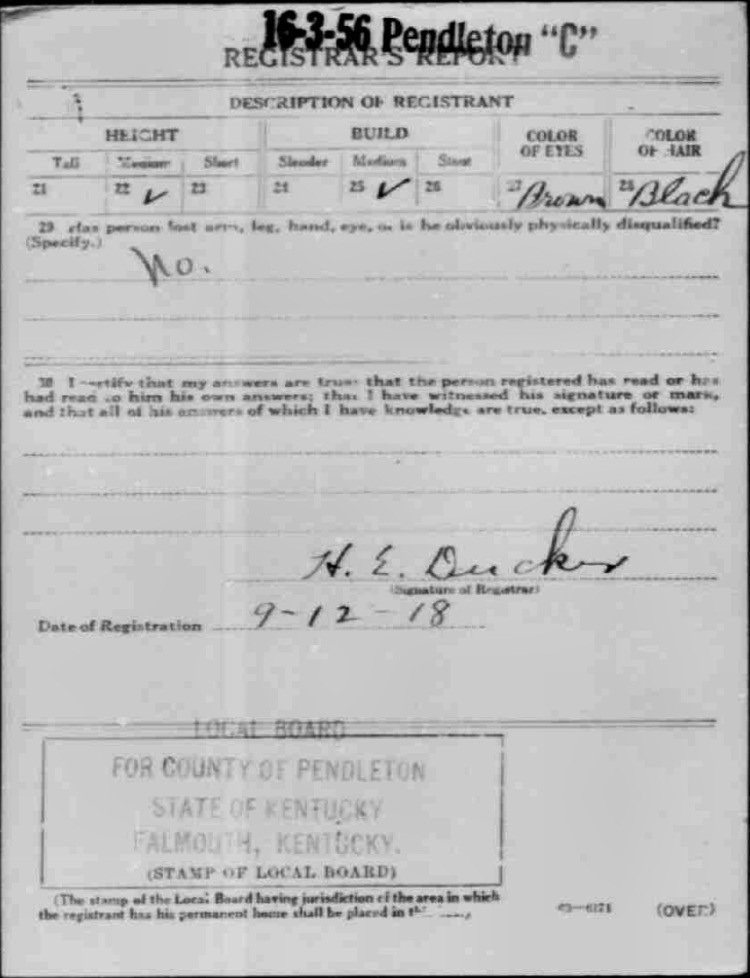 16-3-56 Pendleton "C"
REGISTRAR'S REPORT
DESCRIPTION OF REGISTRANT
HEIGHT BUILD COLOR OF EYES COLOR OF HAIR
Tall Medium Short Slender Medium Stout
21 22 ✓ 23 24 25 ✓ 26 27 Brown 28 Black
29 Has person lost arm, leg, hand, eye, or is he obviously physically disqualified?
(Specify.)
No.
30 I certify that my answers are true; that the person registered has read or has
had read to him his own answers; that I have witnessed his signature or mark,
and that all of his answers of which I have knowledge are true, except as follows:
H. E. Ducker
(Signature of Registrar)
Date of Registration 9-12-18
LOCAL BOARD
FOR COUNTY OF PENDLETON
STATE OF KENTUCKY
FALMOUTH, KENTUCKY.
(STAMP OF LOCAL BOARD)
(The stamp of the Local Board having jurisdiction of the area in which
the registrant has his permanent home shall be placed in
03—6171 (OVER)